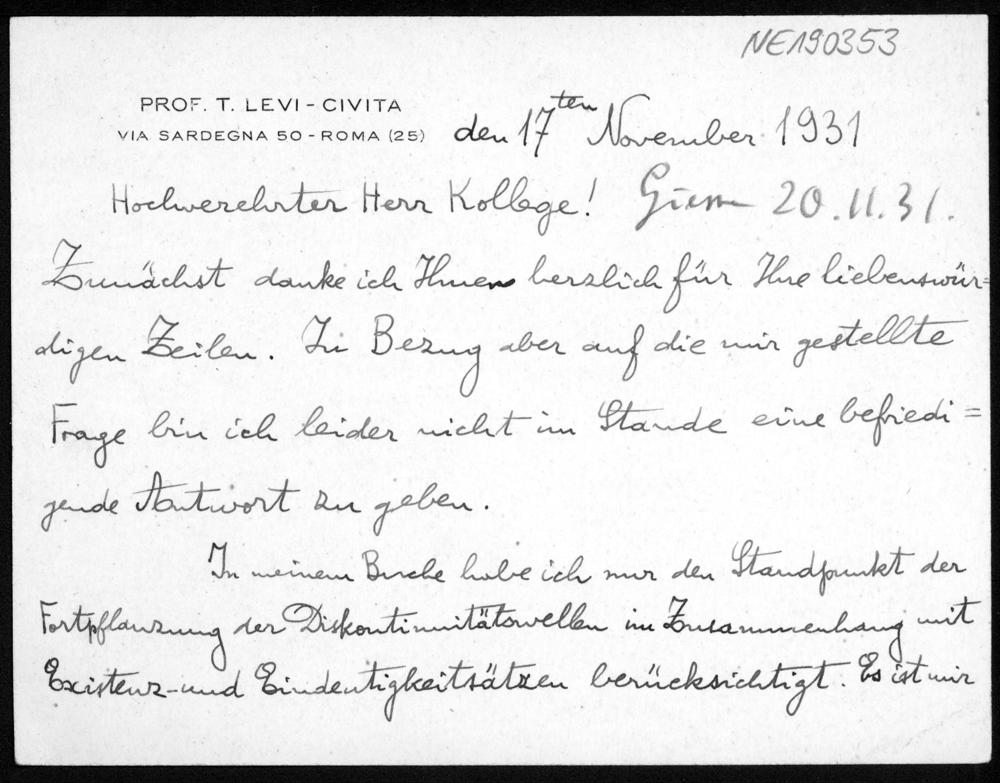 NE190353
PROF. T. LEVI-CIVITA
VIA SARDEGNA 50-ROMA (25)
den 17ten November 1931
Hochverehrter Herr Kollege!
20.11.31.
Zunächst danke ich Ihnen herzlich für Ihre liebenswür=
digen Zeilen. In Bezug aber auf die mir gestellte
Frage bin ich leider nicht im Stande eine befriedi=
gende Antwort zu geben.
In meinem Buche habe ich nur den Standpunkt der
Fortpflanzung der Diskontinuitätswellen im Zusammenhang mit
Existenz-und Eindeutigkeitsätzen berücksichtigt. Es ist mir